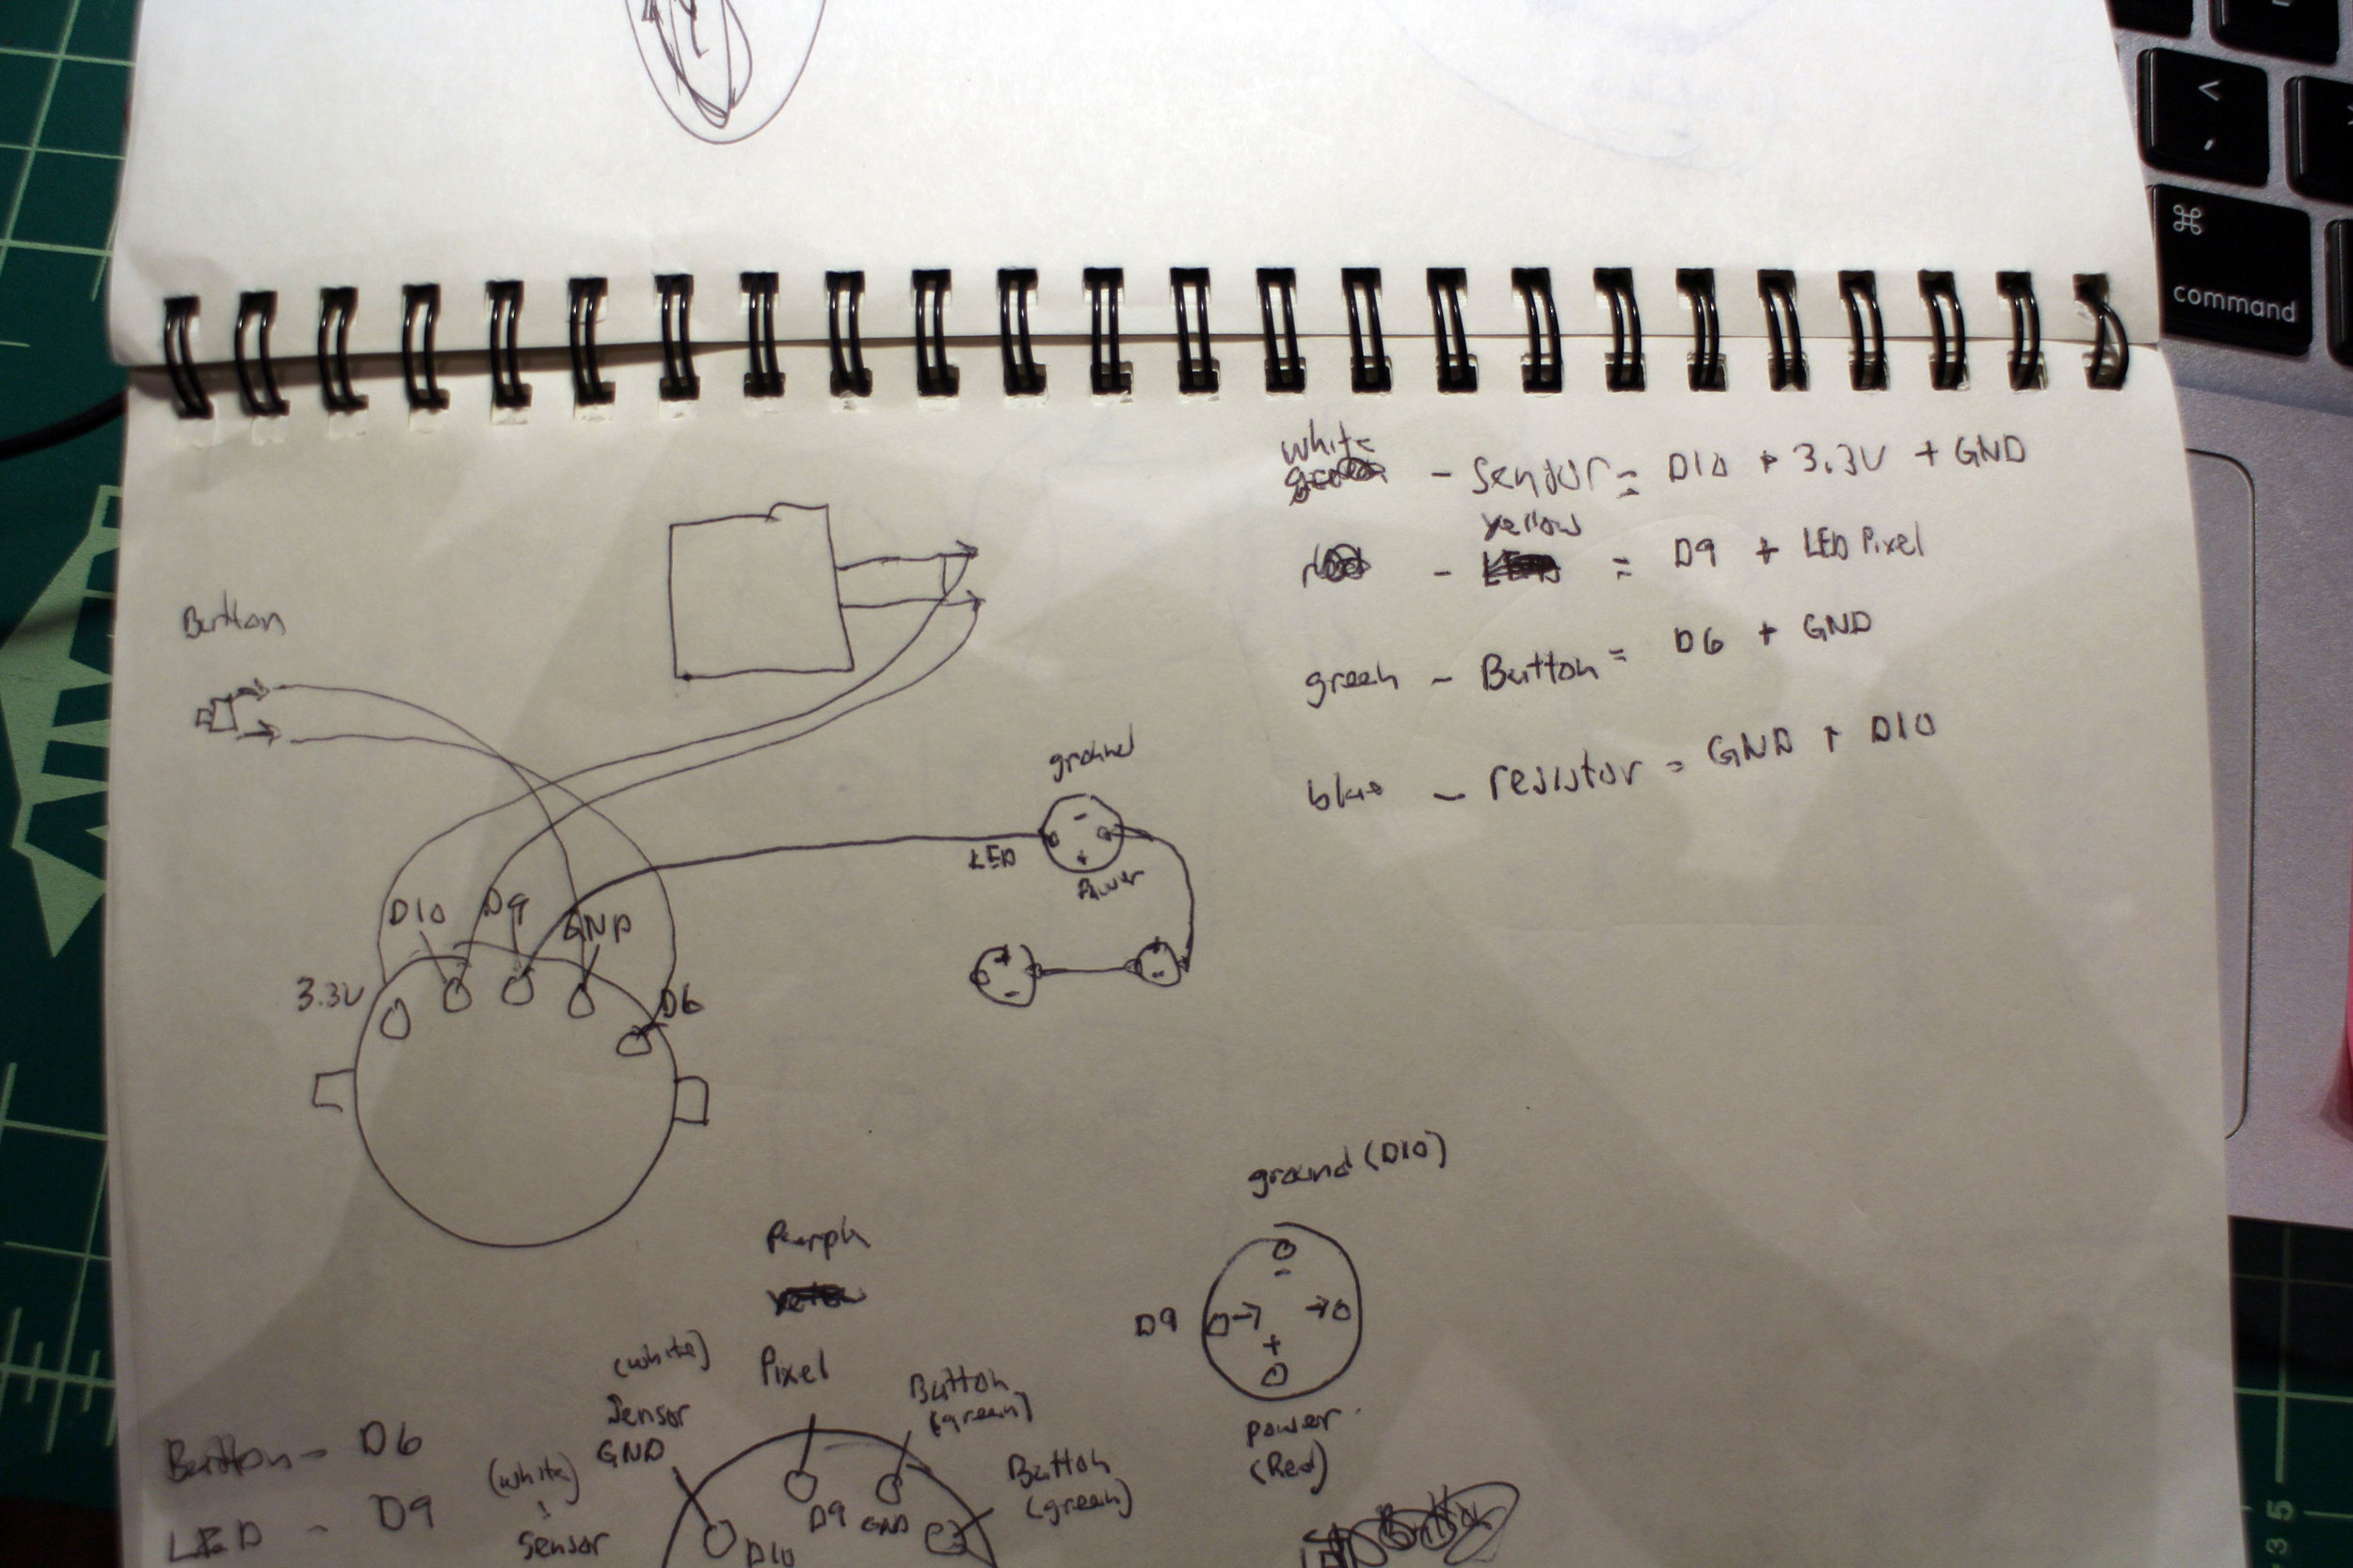 <
,
⌘
command
white
- Sensor = D10 + 3.3V + GND
yellow
- = D9 + LED Pixel
green - Button = D6 + GND
blue - resistor = GND + D10
Button
ground
LED
Power
D10 D9 GND
3.3V
D6
ground (D10)
D9
-
+
Power
(Red)
Purple
(white)
Pixel
Sensor
GND
Button
(green)
Button
(green)
Button - D6
(white)
LED - D9
Sensor
D10
D9
GND
35